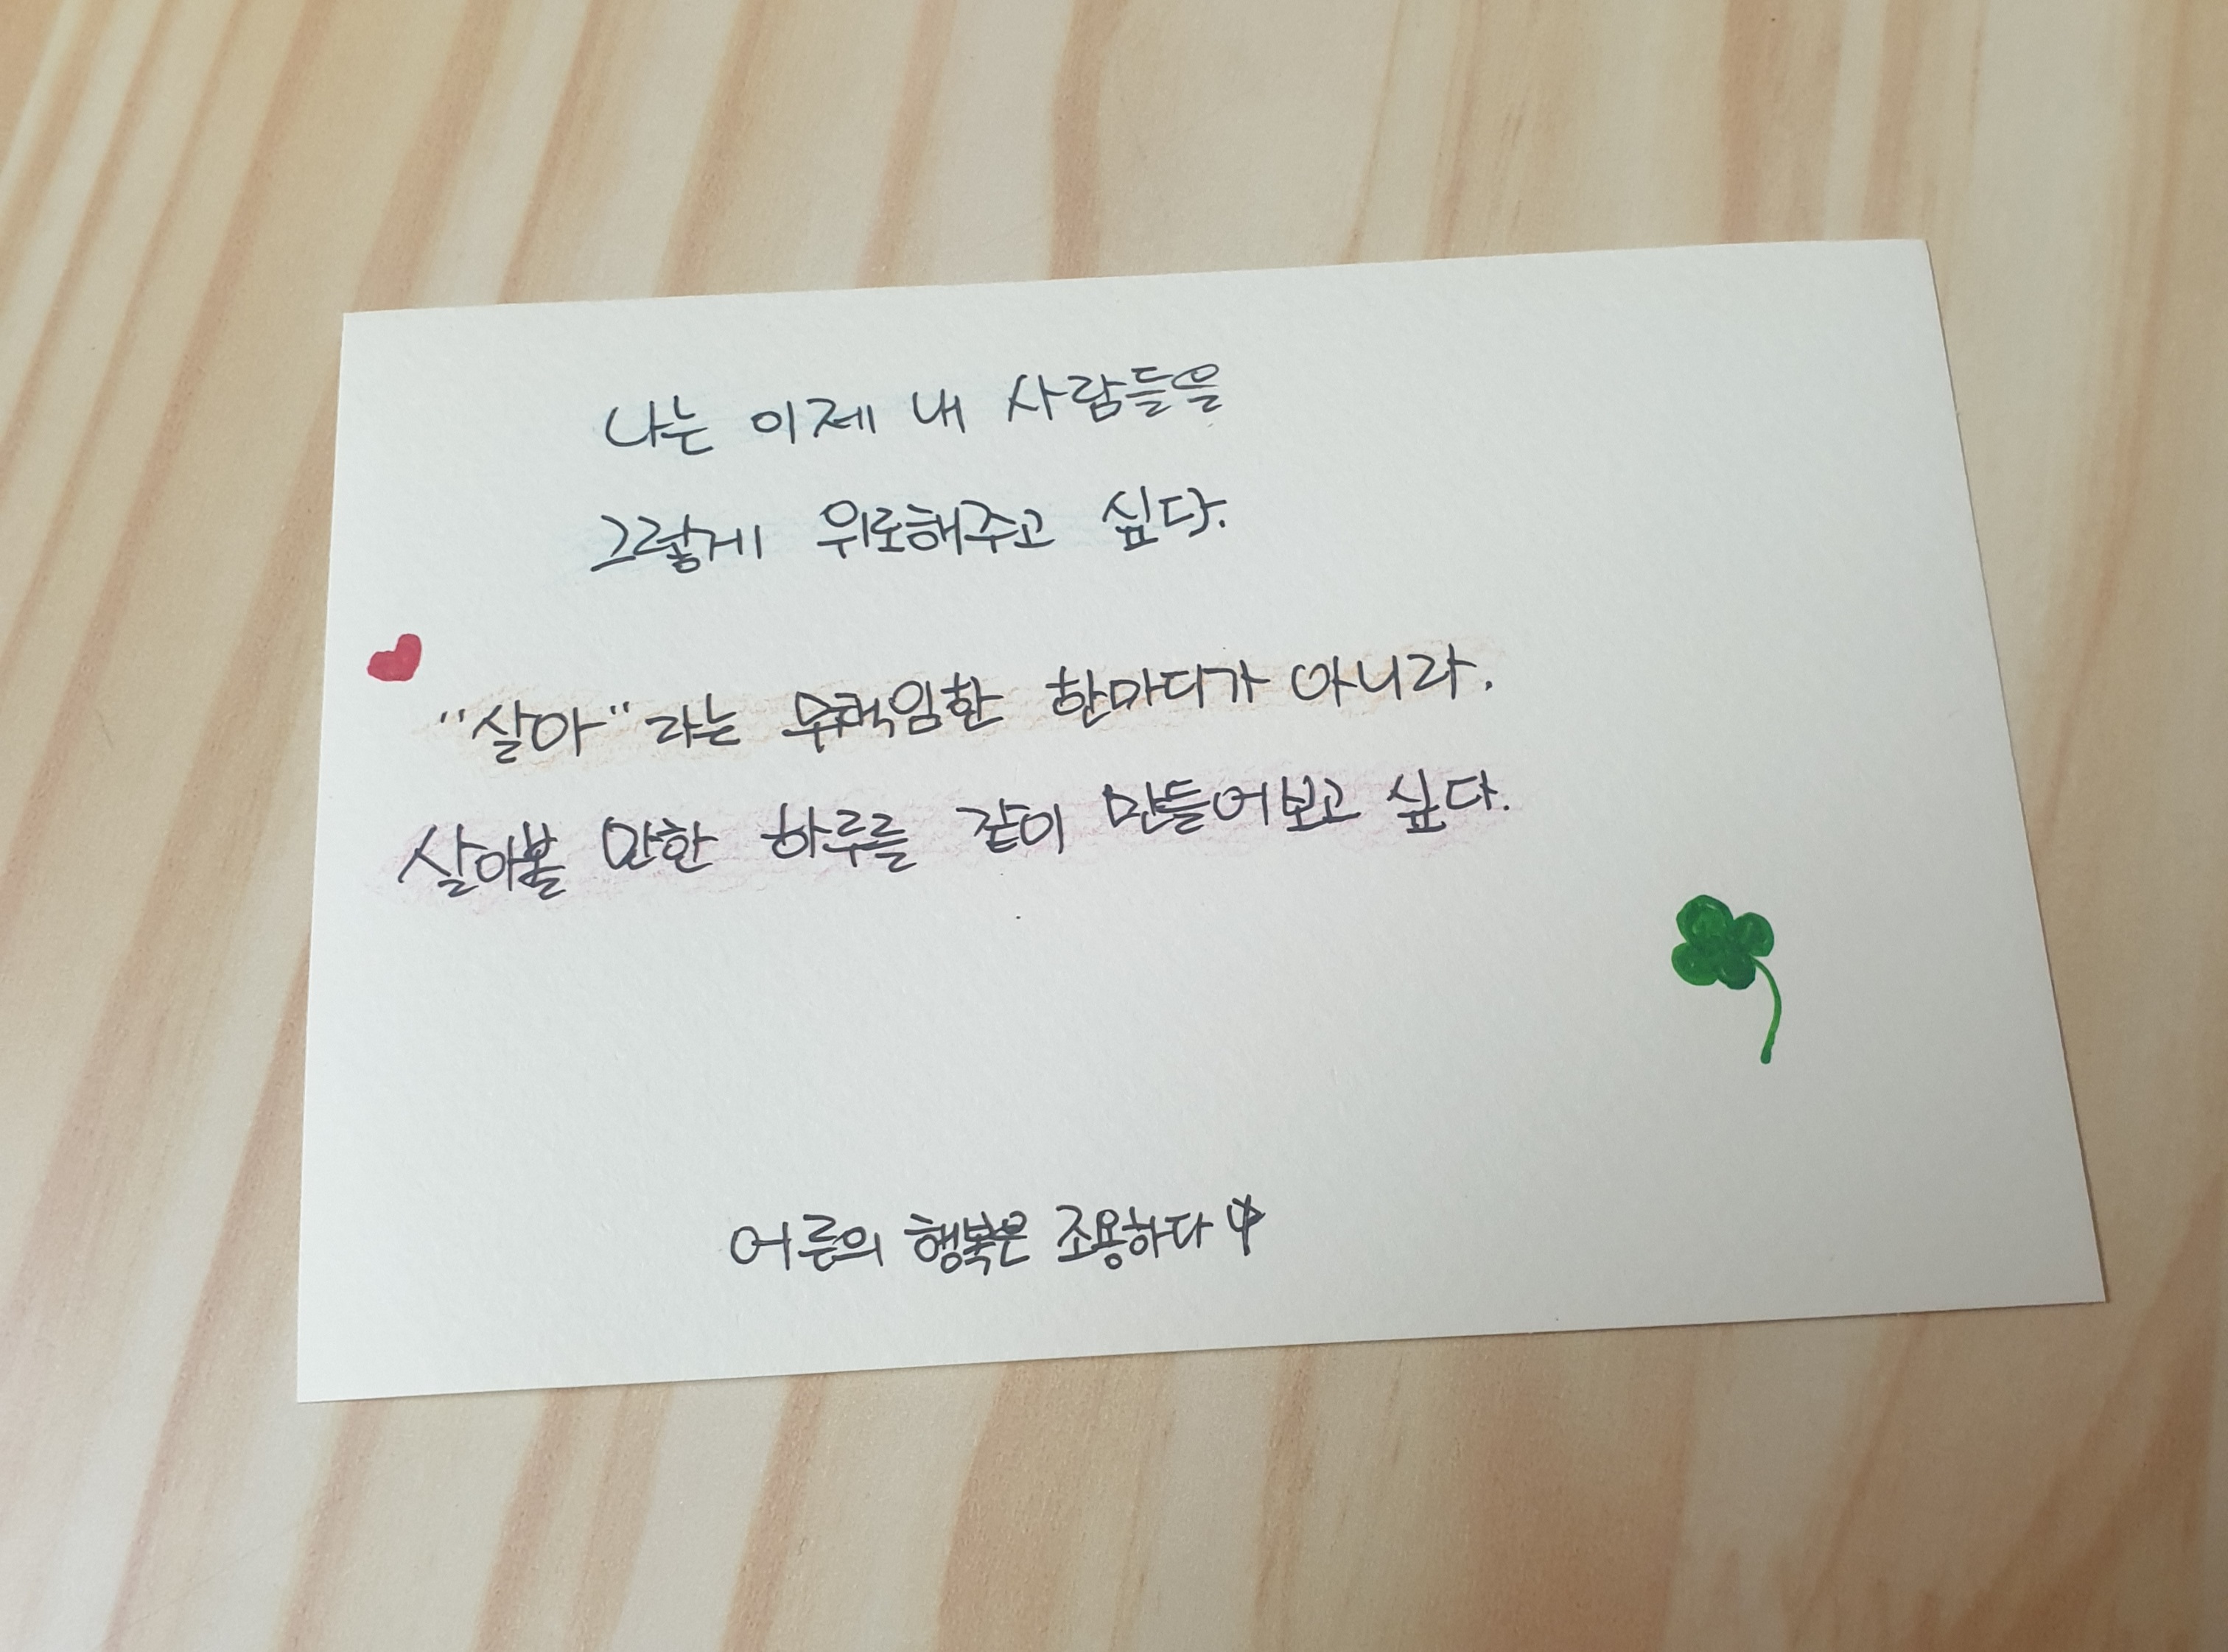 나는 이제 내 사람들을
그렇게 위로해주고 싶다.
"살아"라는 무책임한 한마디가 아니라.
살아볼 만한 하루를 같이 만들어보고 싶다.
어른의 행복은 조용하다